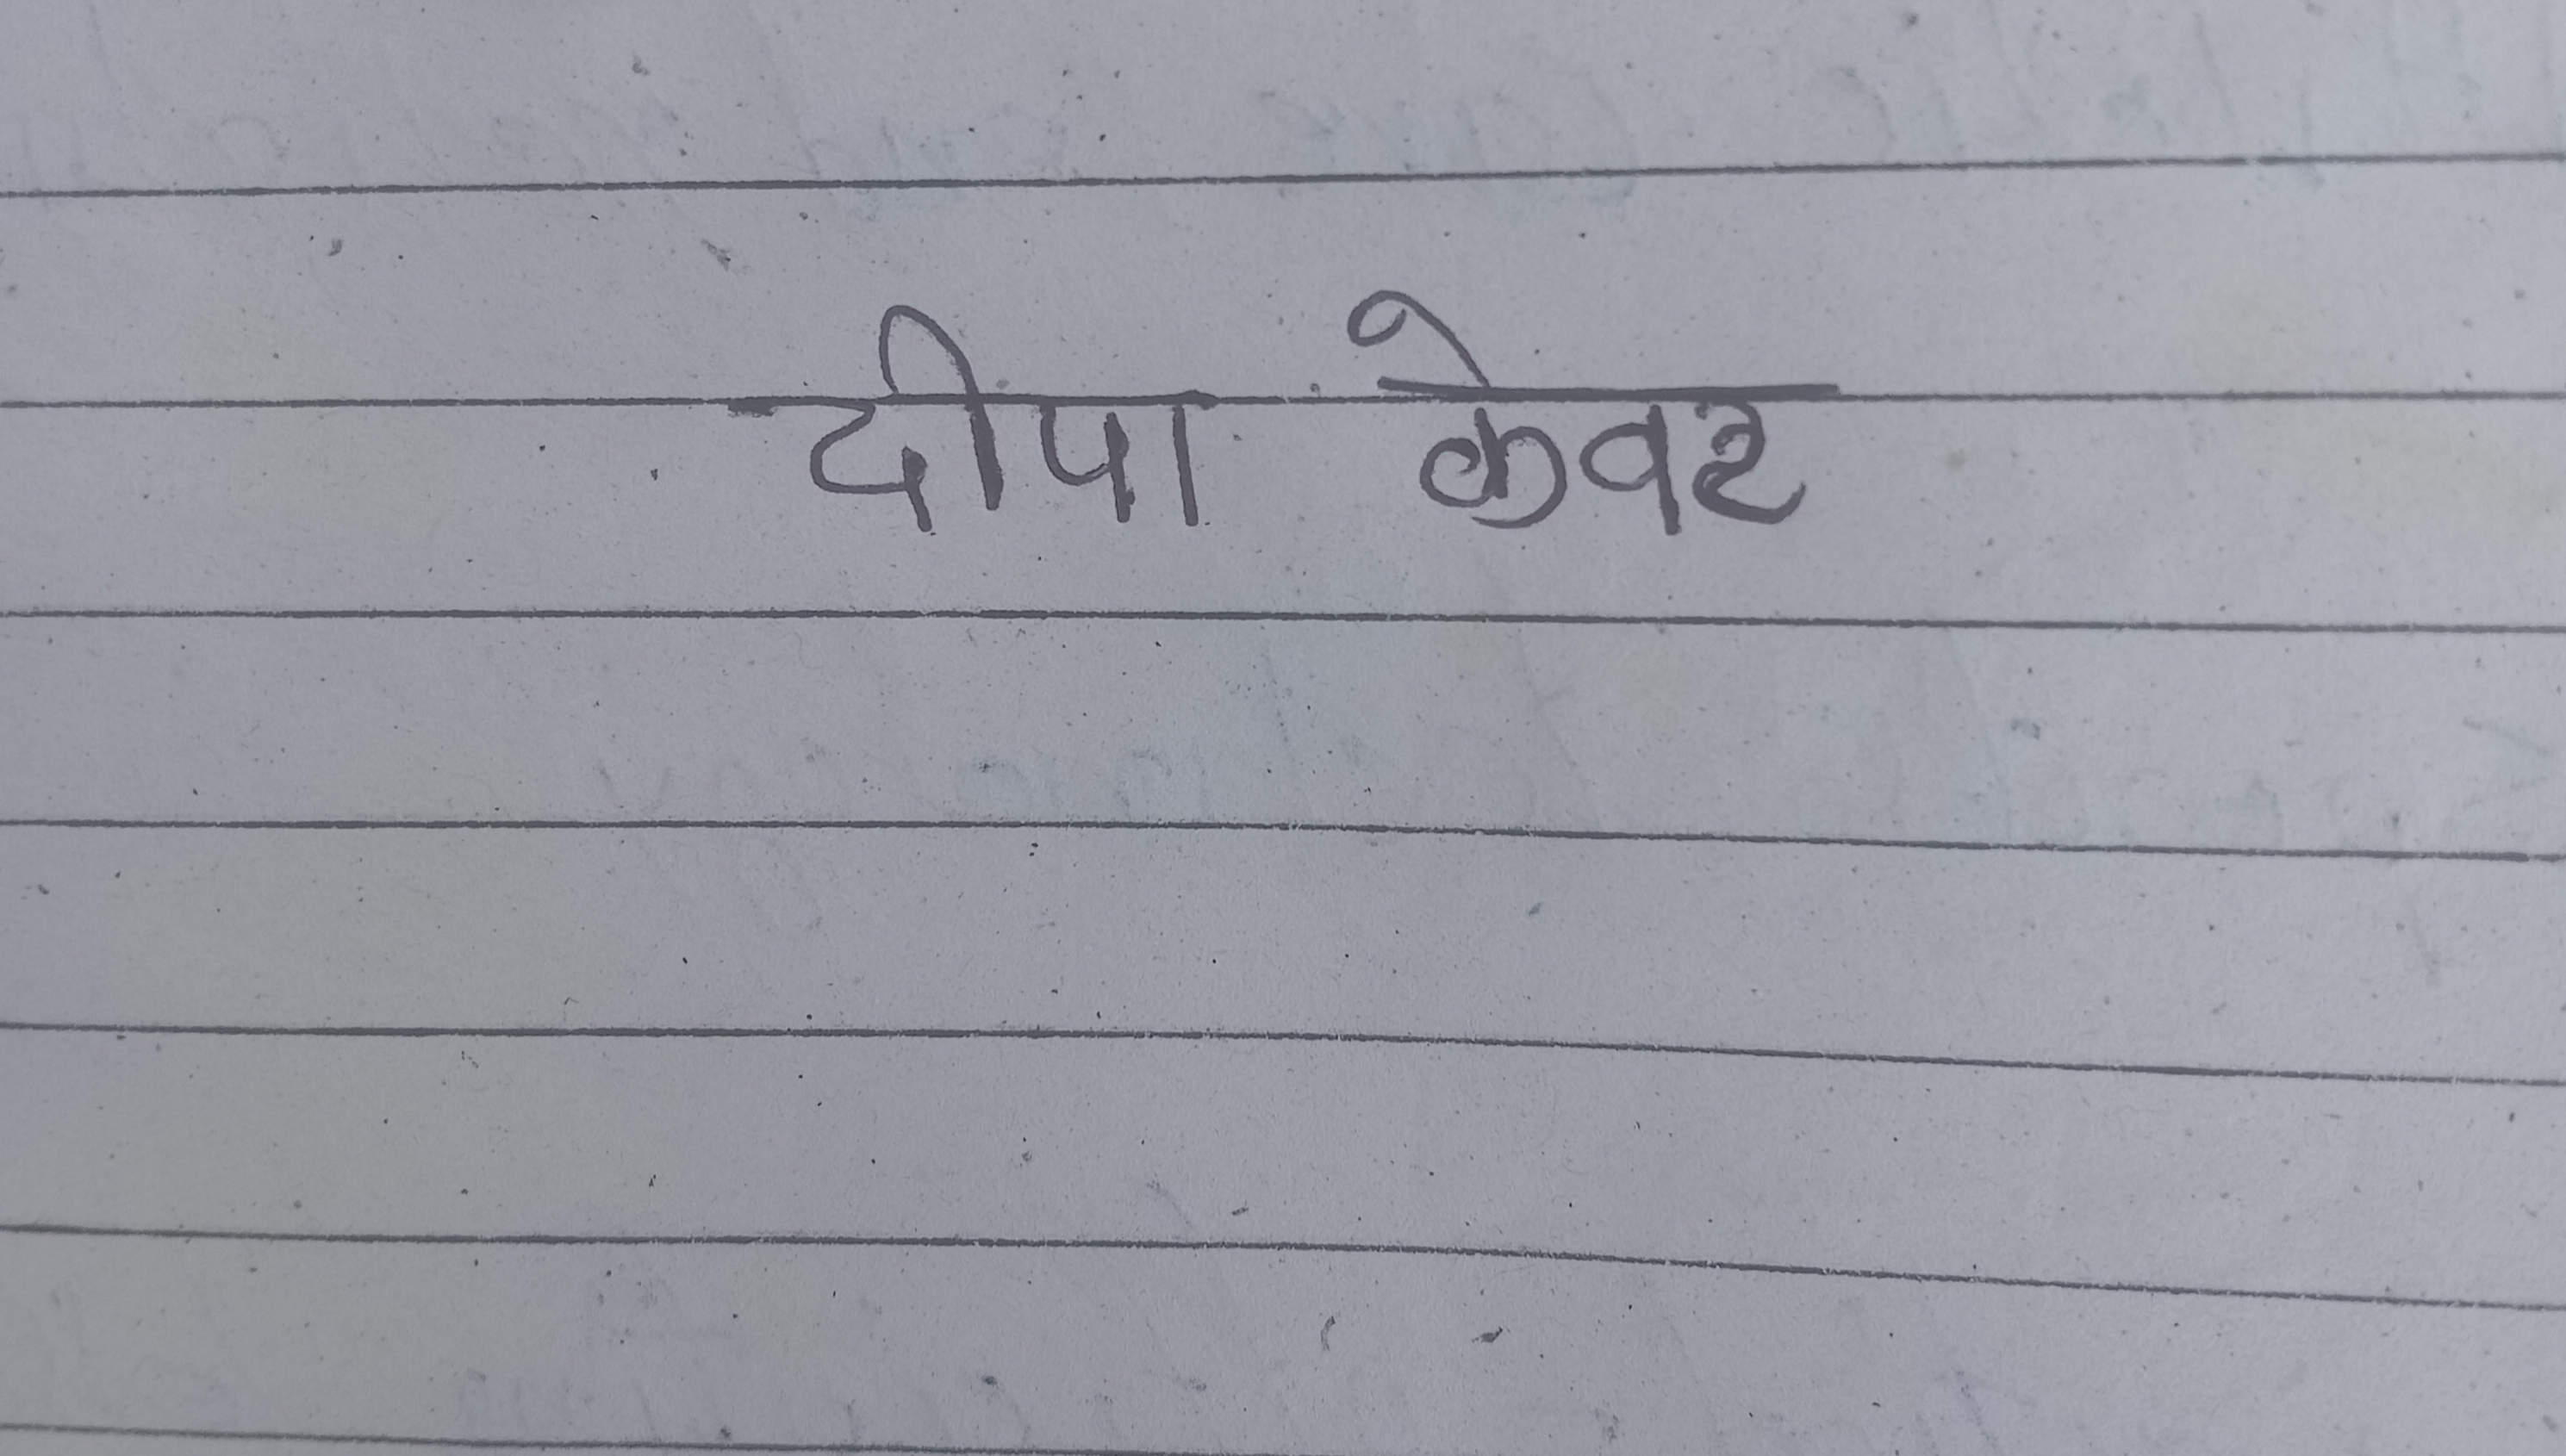 दीपा केवर